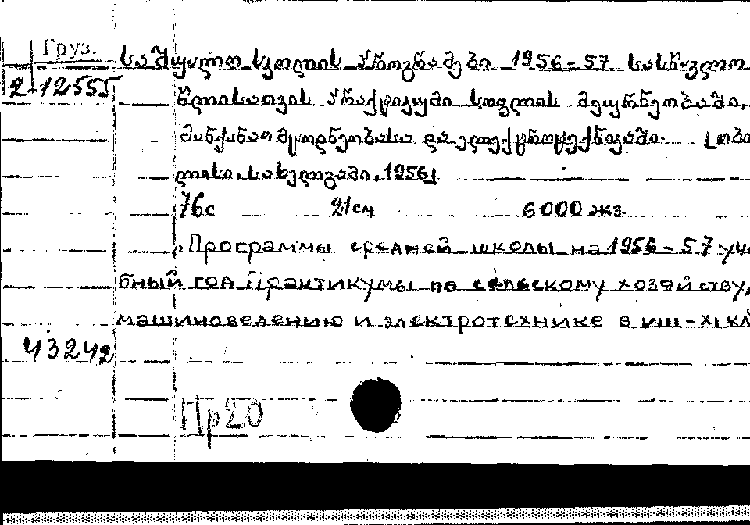 Груз.
საშუალო სკოლის პროგრამები 1956-57 სასწავლო
2-12555
წლისათვის პრაქტიკუმი სოფლის მეურნეობაში,
მანქანათმცოდნეობასა და ელექტროტექნიკაში. თბი
ლისი. სახელგამი. 1956წ
76с 21см 6000 экз.
Программы средней школы на 1956-57 уче
бный год Практикумы по сельскому хозяйству,
машиноведению и электротехнике в VIII-XI кл
43242
Пр20